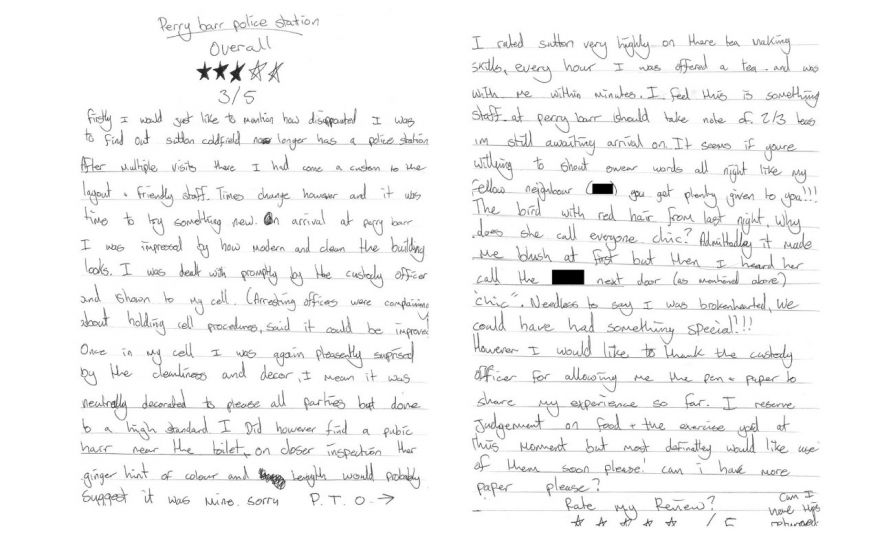 Perry barr police station
Overall
★★★☆☆
3/5
firstly I would just like to mention how disappointed I was
to find out sutton coldfield no longer has a police station
After multiple visits there I had come a custom to the
layout + friendly staff. Times change however and it was
time to try something new. On arrival at perry barr
I was impressed by how modern and clean the building
looks. I was dealt with promptly by the custody officer
and shown to my cell. (Arresting officers were complaining
about holding cell procedures, said it could be improved
Once in my cell I was again pleasently suprised
by the cleanliness and decor, I mean it was
neutrally decorated to please all parties but done
to a high standard I Did however find a pubic
hair near the toilet, on closer inspection ther
ginger hint of colour and length would probably
suggest it was mine. sorry P. T. O. →
I rated sutton very highly on there tea making
skills, every hour I was offered a tea. and was
with me within minutes. I feel this is something
staff at perry barr should take note of. 2/3 teas
im still awaiting arrival on. It seems if youre
willying to shout swear words all night like my
fellow neighbour ( ) you get plenty given to you!!!
The bird with red hair from last night, why
does she call everyone chic? Admittadley it made
me blush at first but then I heard her
call the next door (as mentioned above)
"chic". Needless to say I was brokenhearted, We
could have had something special!!!
However I would like to thank the custody
officer for allowing me the pen + paper to
share my experience so far. I reserve
judgement on food + the exercise yard at
this momment but most definatley would like use
of them soon please! can i have more
paper please?
Rate my Review?
☆ ☆ ☆ ☆ ☆ /5
Can I
have this
returned